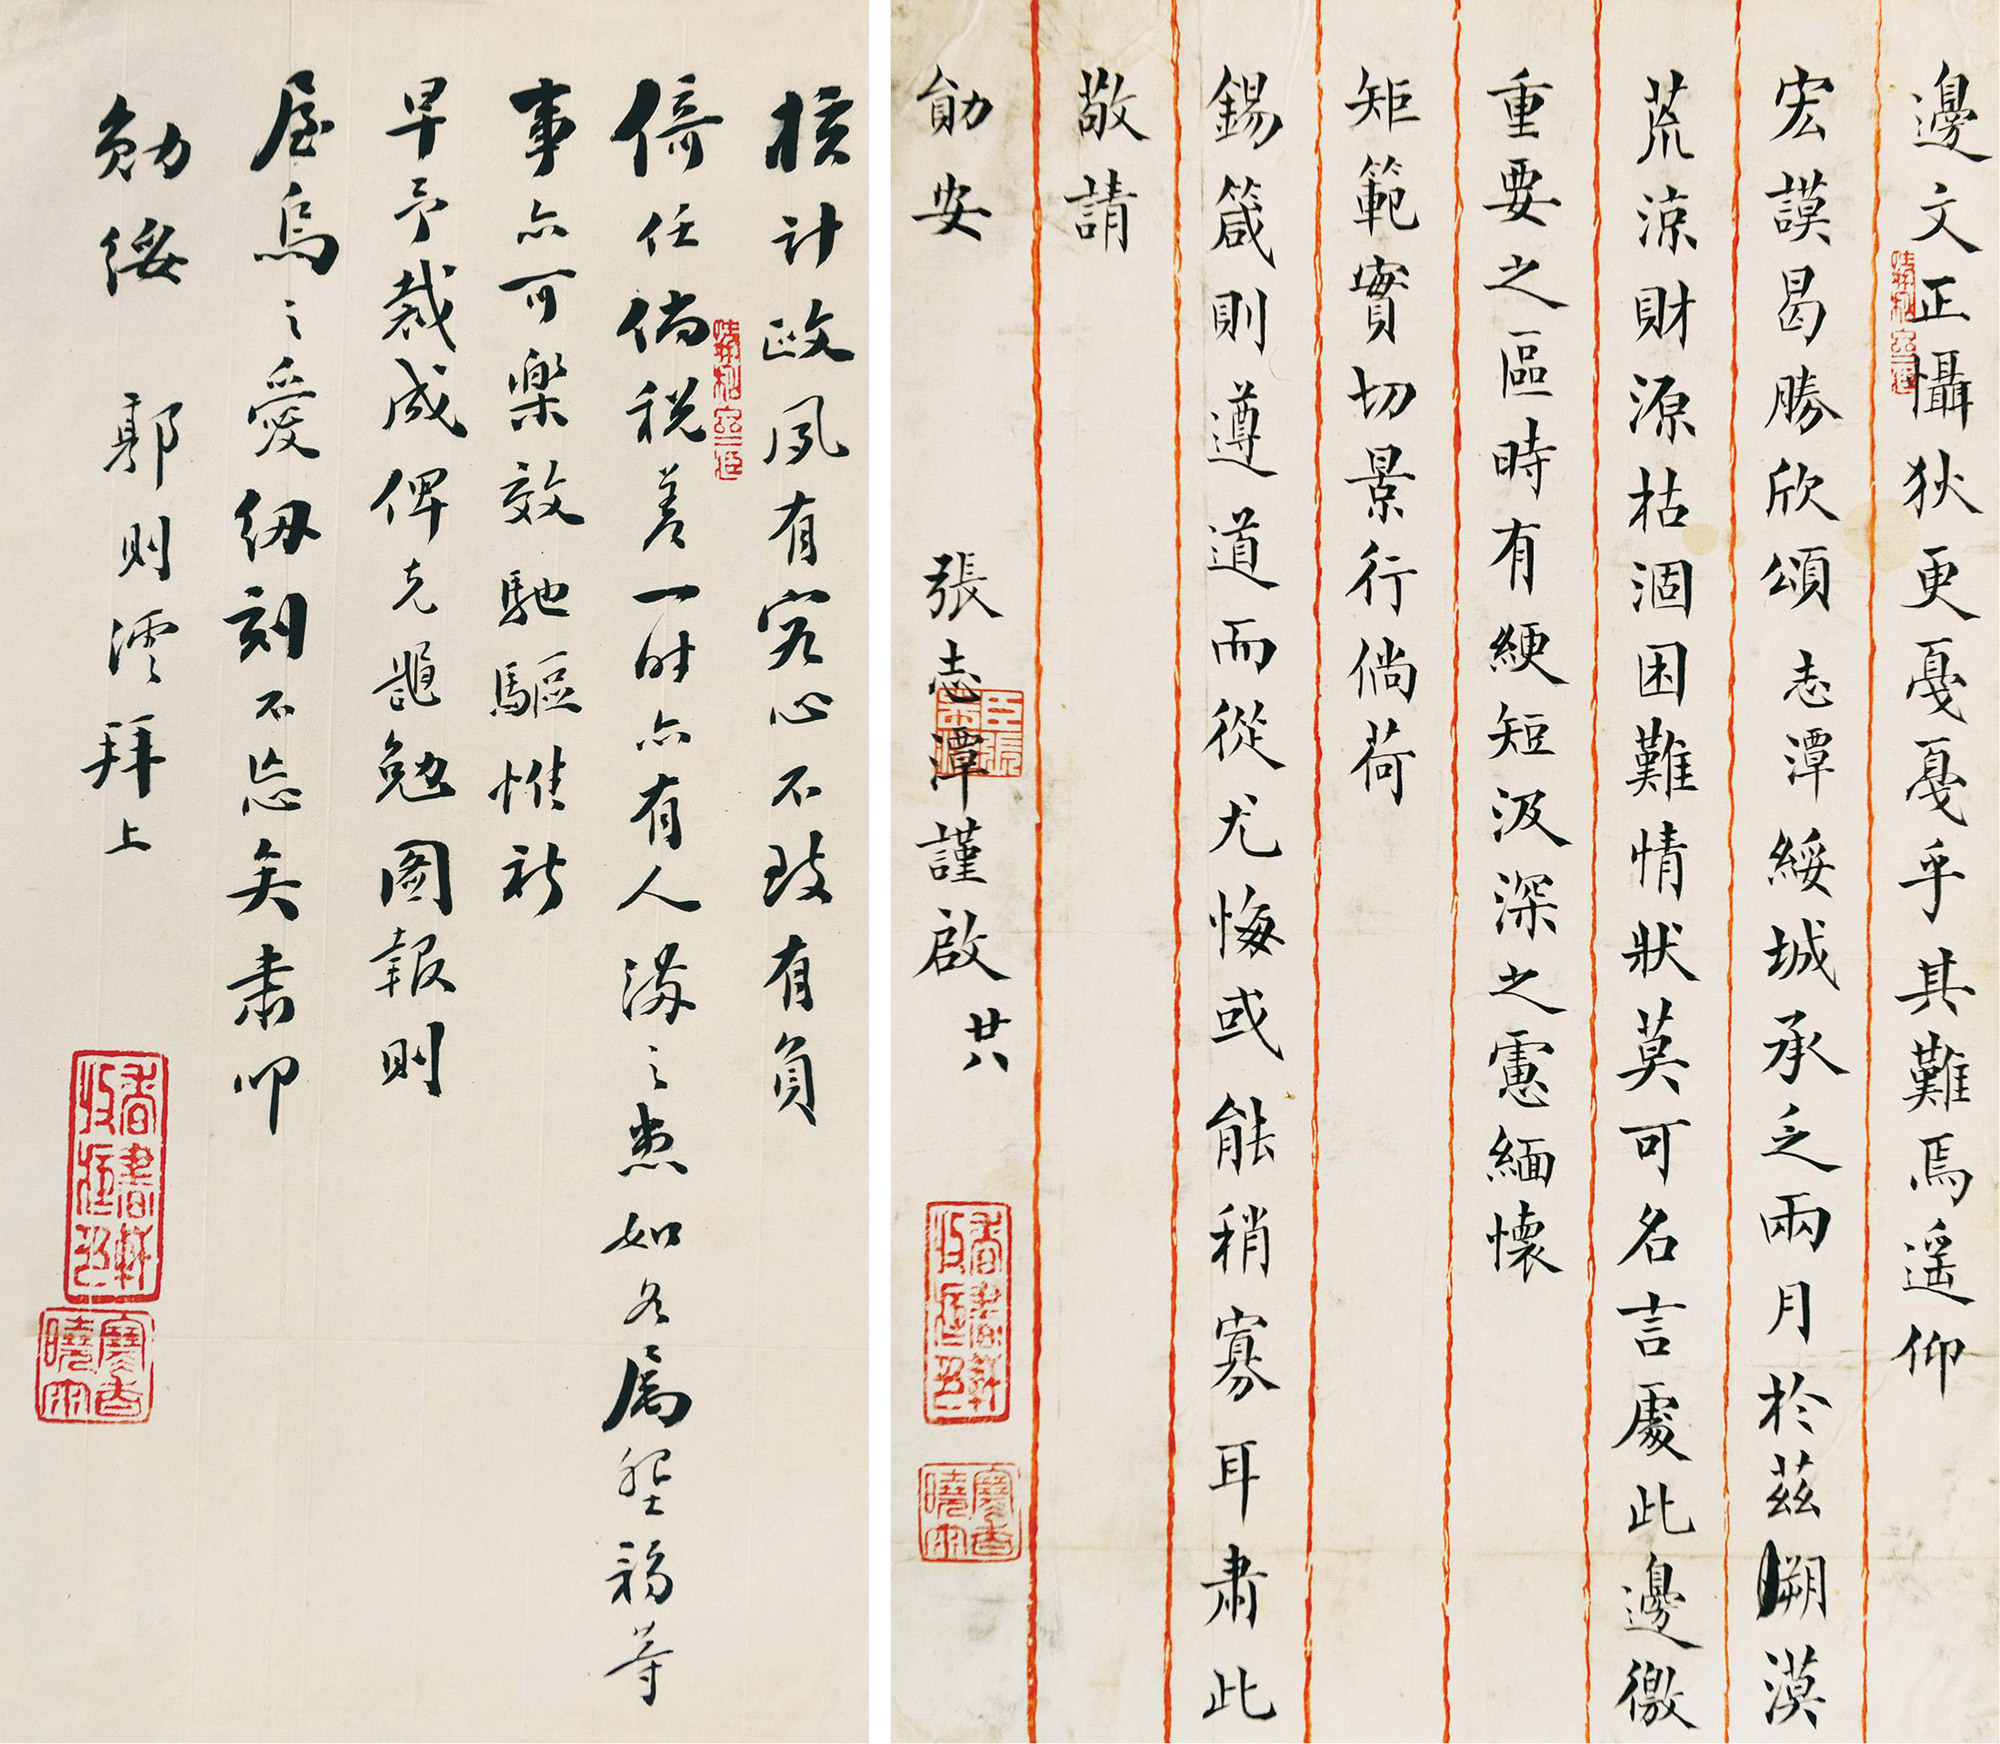 邊文正懾狄更戛戛乎其難焉遥仰
宏謨曷勝欣頌志潭綏城承乏兩月於茲朔漠
荒涼財源枯涸困難情狀莫可名言處此邊徼
重要之區時有綆短汲深之慮緬懷
矩範實切景行倘荷
錫箴則遵道而從尤悔或能稍寡耳肅此
敬請
勛安
張志潭謹啟 廿八
核計政夙有究心不致有負
倚任倘税差一時亦有人滿之患如各屬垦務等
事亦可樂效馳驅惟祈
早予裁成俾克黽勉圖報則
屋烏之愛紉刻不忘矣肅叩
勛綏 郭則澐拜上